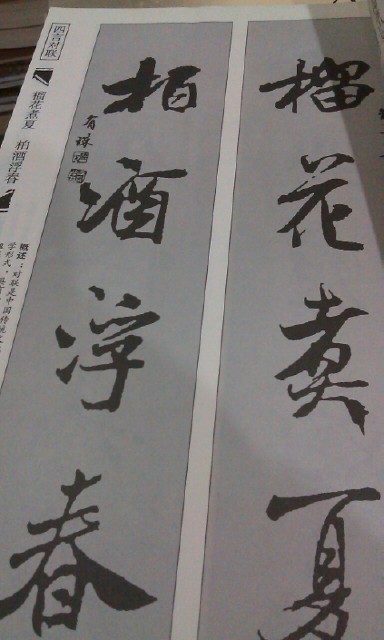 榴花煮夏
柏酒浮春
有詠
四言对联
榴花煮夏 柏酒浮春
概述：对联是中国传统
学形式，